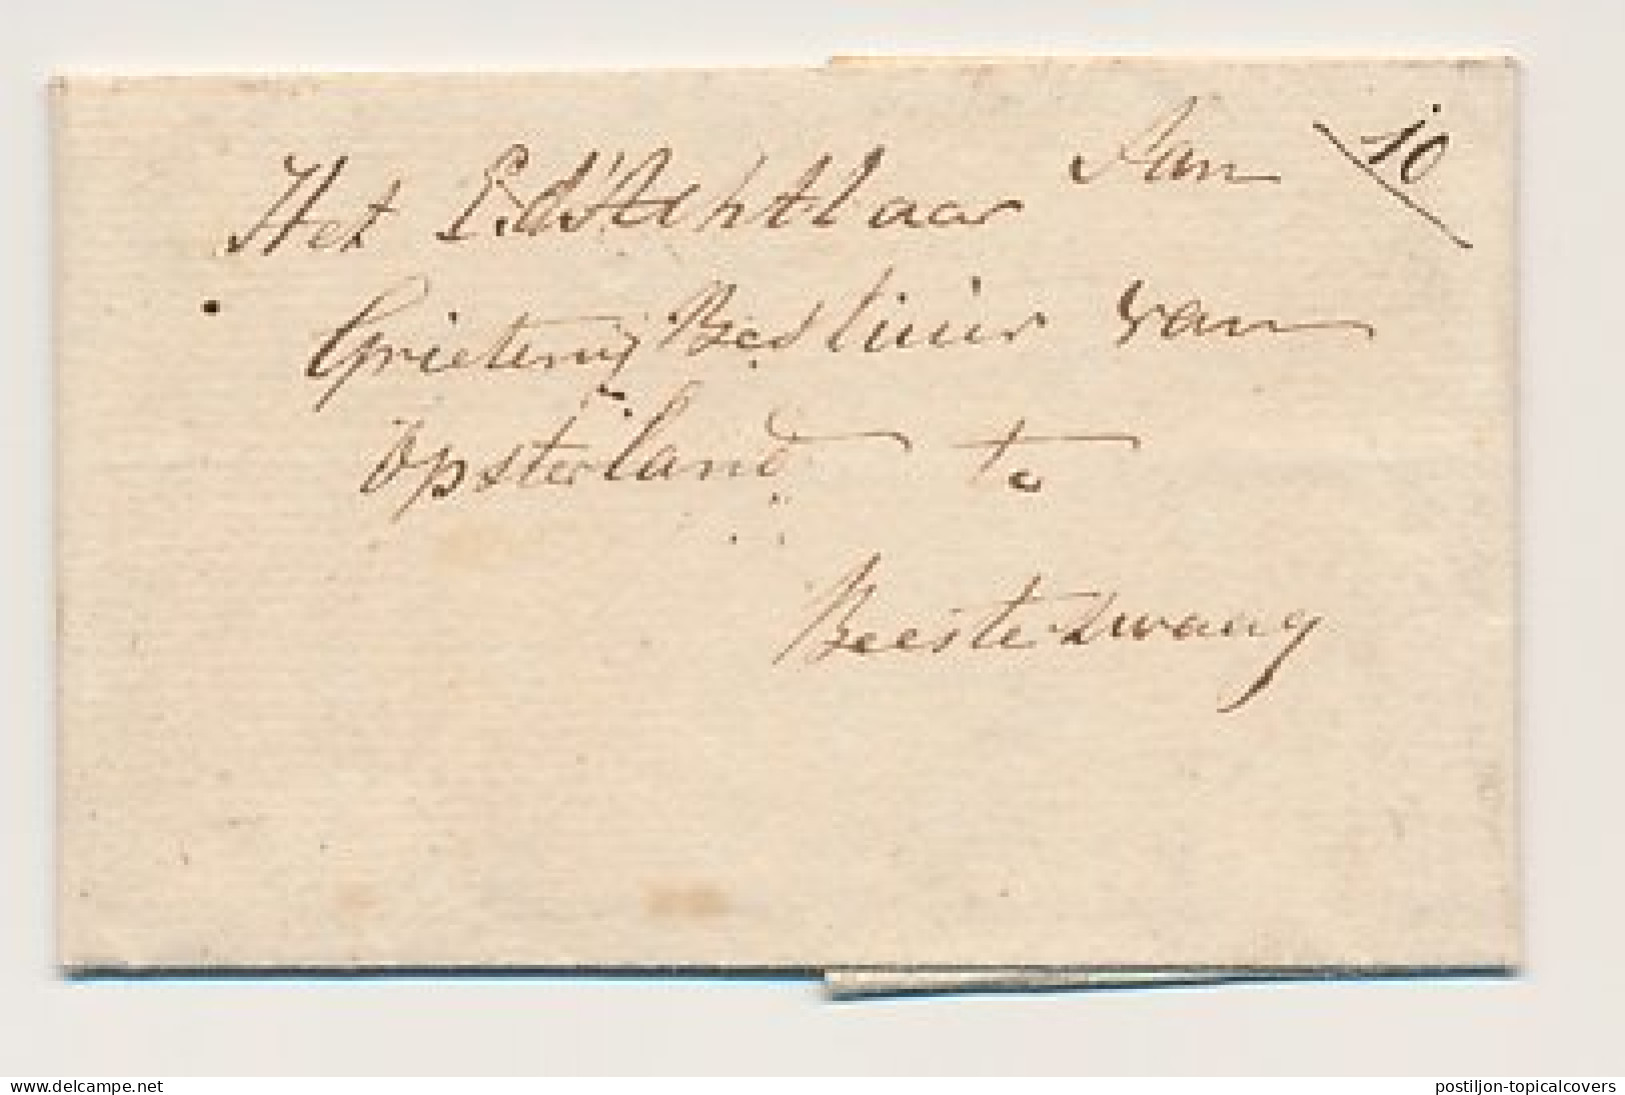 Aan 10
Het E. Achtbaar
Grieteny Bestuur van
Opsterland te
Beesterzwaag
www.delcampe.net
postiljon-topicalcovers